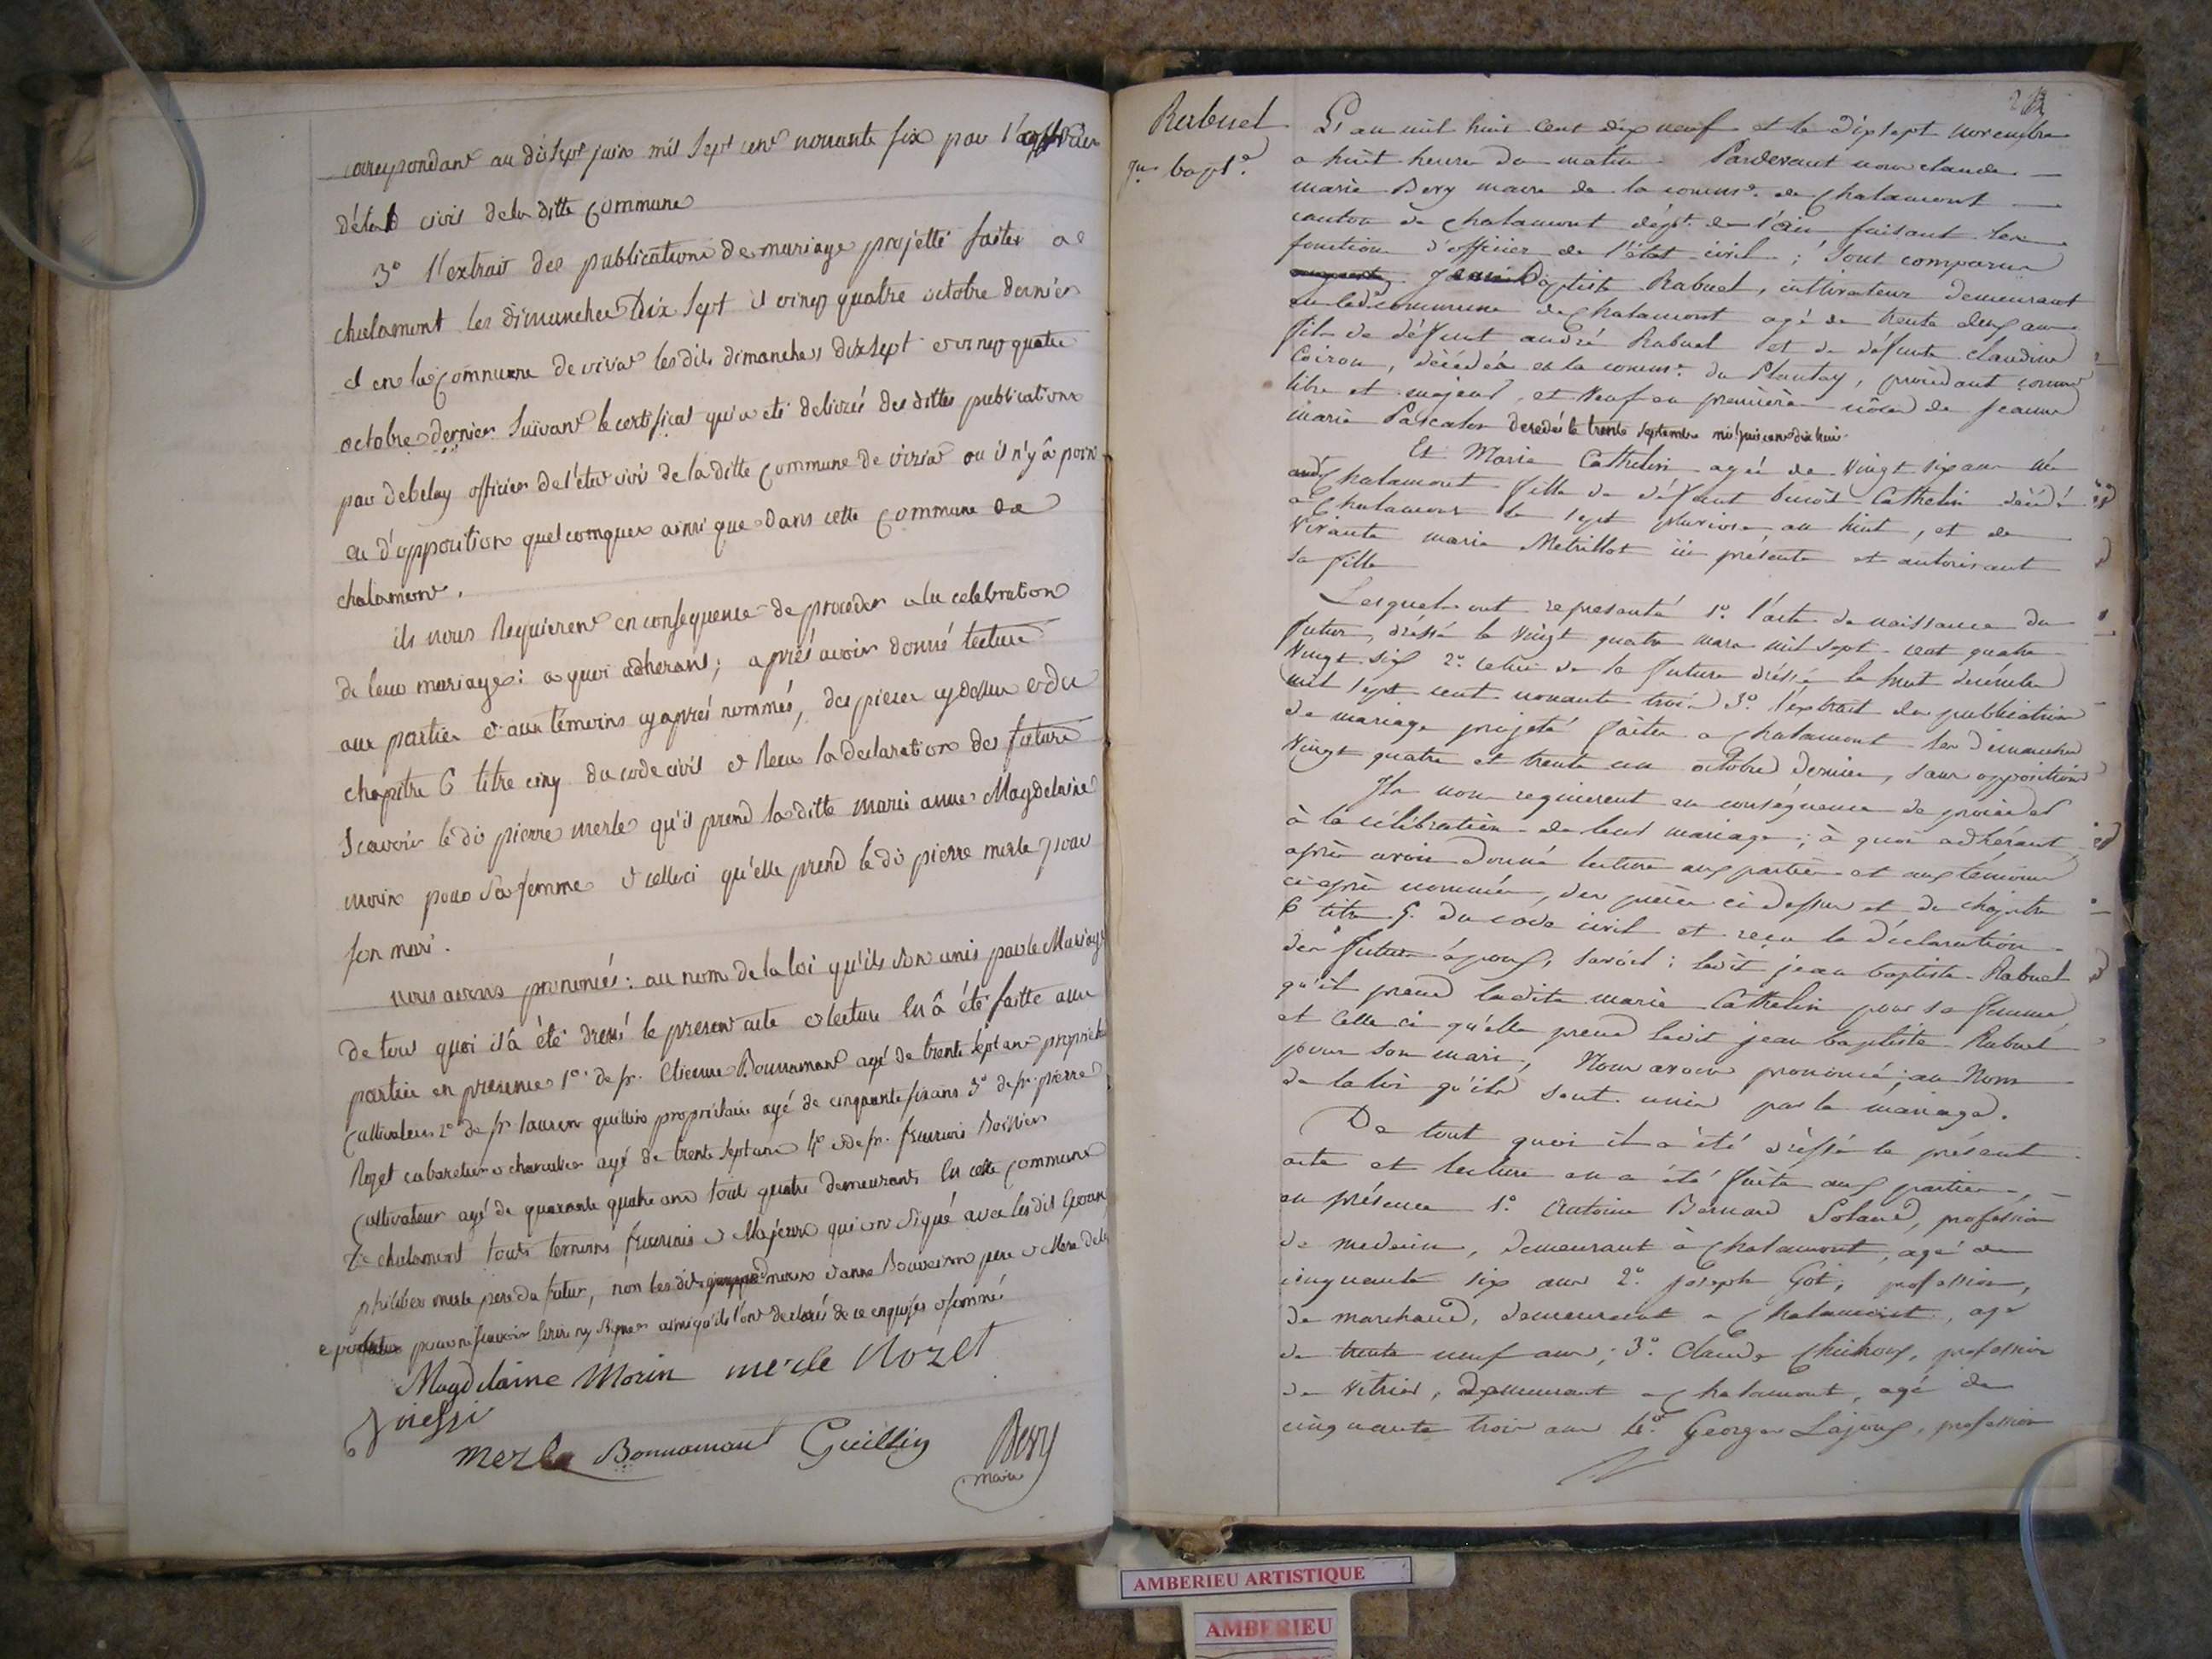 correspondant au dix sept juin mil sept cent nonante six par l'officier
d'état civil de la ditte Commune
3° l'extrait des publications de mariage projetté faites a
chalamont les dimanches Dix Sept et vingt quatre octobre dernier
et en la Commune de viriat lesdits dimanches dix sept et vingt quatre
octobre dernier suivant le certificat qu'a eté delivré des dittes publications
par debelay officier de l'état civil de la ditte Commune de viriat ou il n'y â point
eu d'opposition quelconque ainsi que dans cette Commune de
chalamont.
ils nous Requierent en consequence de proceder a la celebration
de leur mariage: a quoi adherant; après avoir donné lecture
aux parties et aux témoins cy après nommés, des pieces cy dessus et du
chapitre 6 titre cinq du code civil et Recu la declaration des futurs
scavoir le dit pierre merle qu'il prend la ditte marie anne Magdelaine
morin pour sa femme et celle ci qu'elle prend le dit pierre merle pour
son mari.
nous avons prononcés: au nom de la loi qu'ils sont unis par le Mariage
de tout quoi il a été dressé le present acte et lecture en â été faitte aux
parties en presence 1° de sr. Etienne Bonnamant agé de trente sept ans proprietaire
Cultivateur 2° de sr laurent guillin propriétaire agé de cinquante six ans 3° de sr. pierre
Rozet cabaretier et charcutier agé de trente sept ans 4° et de sr. francois
Cultivateur agé de quarante quatre ans tous quatre demeurants en cette Commune
De chalamont touts temoins francais et Majeurs qui ont signé avec lesdits Epoux
philibert merle pere du futur, non les dits morin et anne Bouvier pere et Mere de la
future pour ne scavoir Ecrire ny signer ainsi qu'ils l'ont declarés de ce enquis et sommés
Magdelaine Morin merle Rozet
merle Bonnamant Guillin Bevy
maire
Rabuel
jn bapte.
L'an mil huit cent dix neuf et le dix sept novembre
a huit heures du matin. Pardevant nous claude
marie Bevy maire de la comme. de Chalamont
canton de Chalamont dépt. de l'ain faisant les
fonctions d'officier de l'état civil; Sont comparus
Jean Baptiste Rabuel, cultivateur demeurant
en lad. commune de Chalamont agé de trente deux ans
fils de défunt andré Rabuel et de défunte claudine
Coiron, décédés en la comme. du Plantay, procédant comme
libre et majeur, et Veuf en premières nôces de jeanne
marie Pascalon decedée le trente septembre mil huit cent dix huit.
Et Marie Cathelin agée de Vingt six ans née
a Chalamont fille de défunt benoit Cathelin décédé
a Chalamont le sept pluviose an huit, et de
Vivante marie Metrillot ici présente et autorisant
sa fille
Lesquels ont representé 1° l'acte de naissance du
futur, dréssé le Vingt quatre mars mil sept cent quatre
Vingt six 2° celui de la future dréssé le huit décembre
mil sept cent nonante trois 3° l'extrait des publications
de mariage projeté faites a Chalamont les dimanches
Vingt quatre et trente un octobre dernier, sans opposition
Ils nous requierent en conséquence de procéder
à la célébration de leur mariage; à quoi adhérant
après avoir donné lecture aux parties et aux témoins
ci après nommés, des pièces ci dessus et du chapitre
6 titre 5. du code civil et reçu la déclaration
des futurs époux, savoir: ledit jean baptiste Rabuel
qu'il prend ladite marie Cathelin pour sa femme
et Celle ci qu'elle prend ledit jean baptiste Rabuel
pour son mari, Nous avons prononcé; au Nom
de la loi qu'ils sont unis par le mariage.
De tout quoi il a été dréssé le présent
acte et lecture en a été faite aux parties,
en présence 1° Antoine Bernard Soland, profession
de medecin, demeurant à Chalamont, agé de
cinquante six ans 2° Joseph Goi, profession,
de marchand, demeurant a Chalamont, agé
de trente neuf ans; 3° Claude Chichoux, profession
de Vitrier, demeurant a Chalamont, agé de
cinquante trois ans 4° George Lajoux, profession
AMBERIEU ARTISTIQUE
AMBERIEU